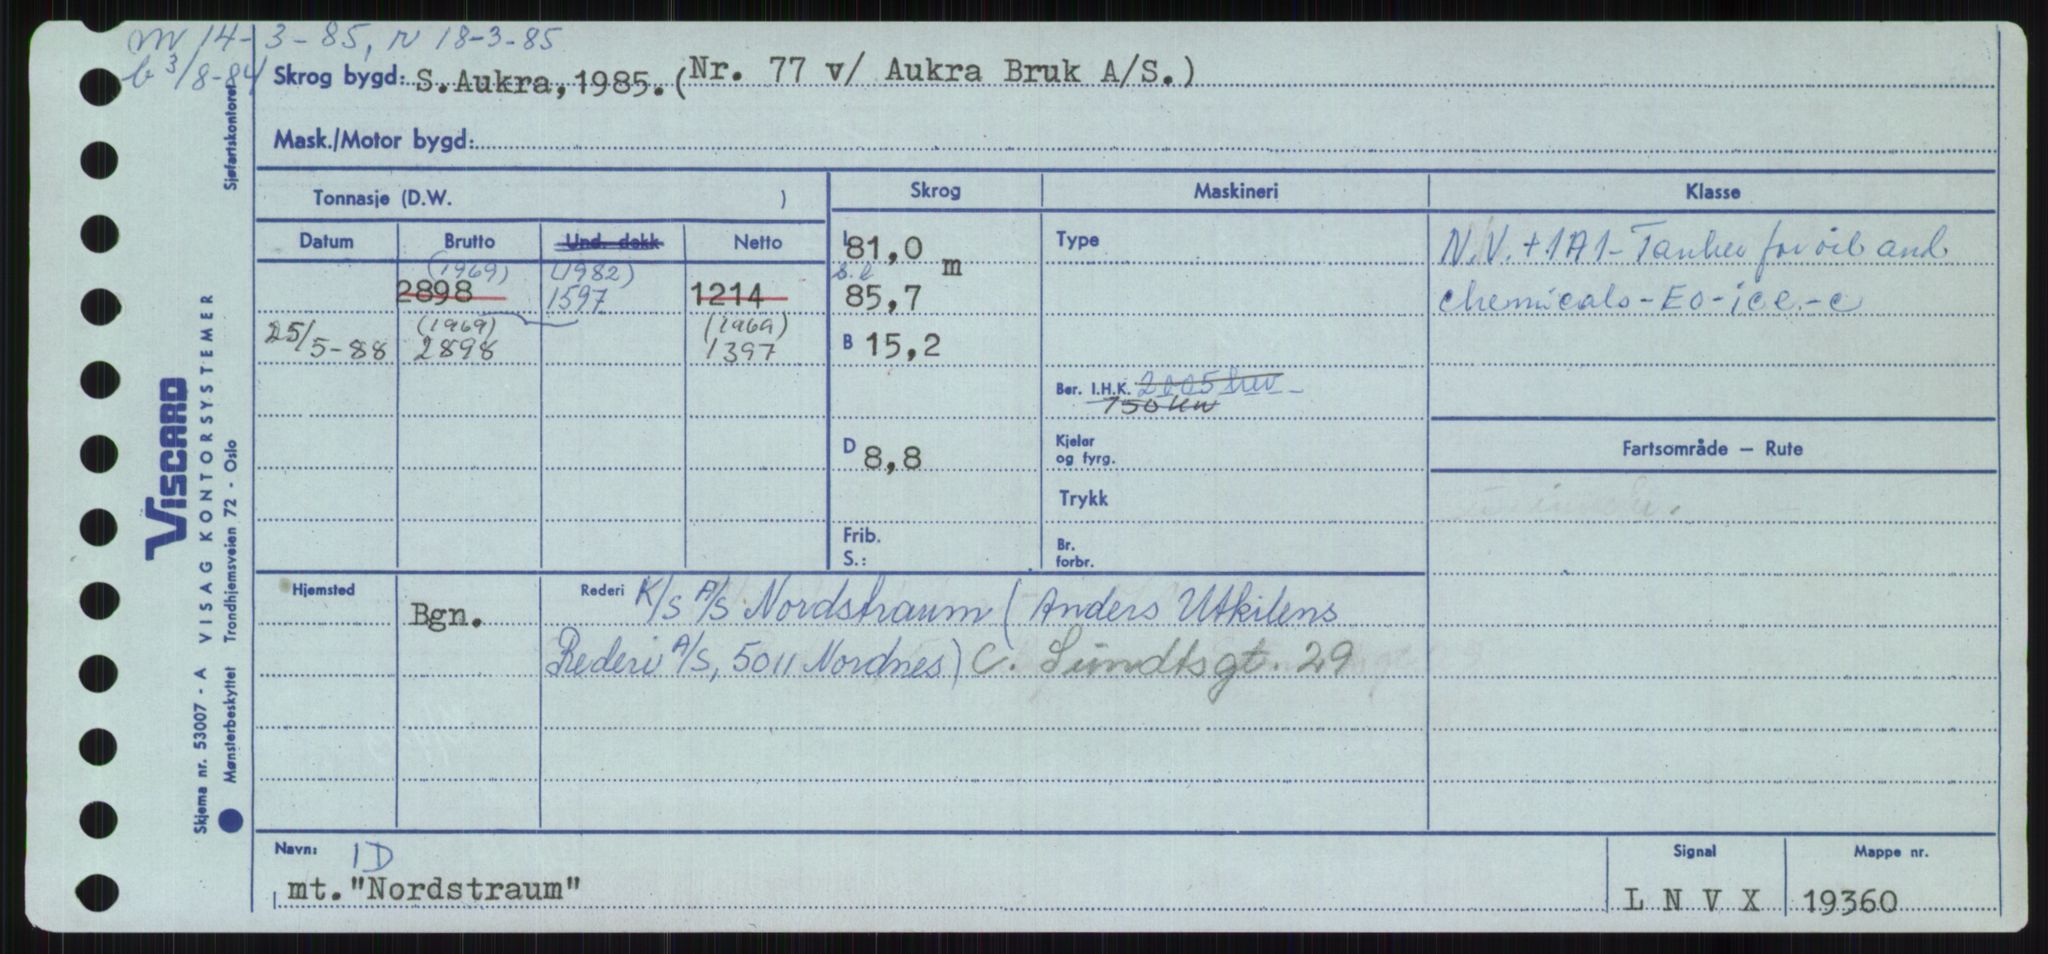 m 14-3-85, r 18-3-85
b 3/8-84
Skrog bygd: S.Aukra, 1985. (Nr. 77 v/ Aukra Bruk A/S.)
Mask./Motor bygd:
Tonnasje (D.W. )
Skrog Maskineri Klasse
Datum Brutto Und. dekk Netto
L 81,0 m
Type
N.V. +1A1- Tanker for oil and
(1969) (1982)
2898 1597 1214
b.l 85,7
chemicals - EO - ice - c
(1969) (1969)
25/5-88 2898 1397
B 15,2
Ber. I.H.K. 2005 kw
750 kw
D 8,8
Kjelar
og fyrg.
Fartsområde — Rute
Trykk
Frib.
S.:
Br.
forbr.
Hjemsted Bgn.
Rederi K/S A/S Nordstraum (Anders Utkilens
Rederi A/S, 5011 Nordnes) C. Sundtsgt. 29
Navn: ID
mt. "Nordstraum"
Signal
L N V X
Mappe nr.
19360
Sjøfartskontoret
VISCARD
Skjema nr. 53007 - A VISAG KONTORSYSTEMER
Mønsterbeskyttet Trondhjemsveien 72 - Oslo